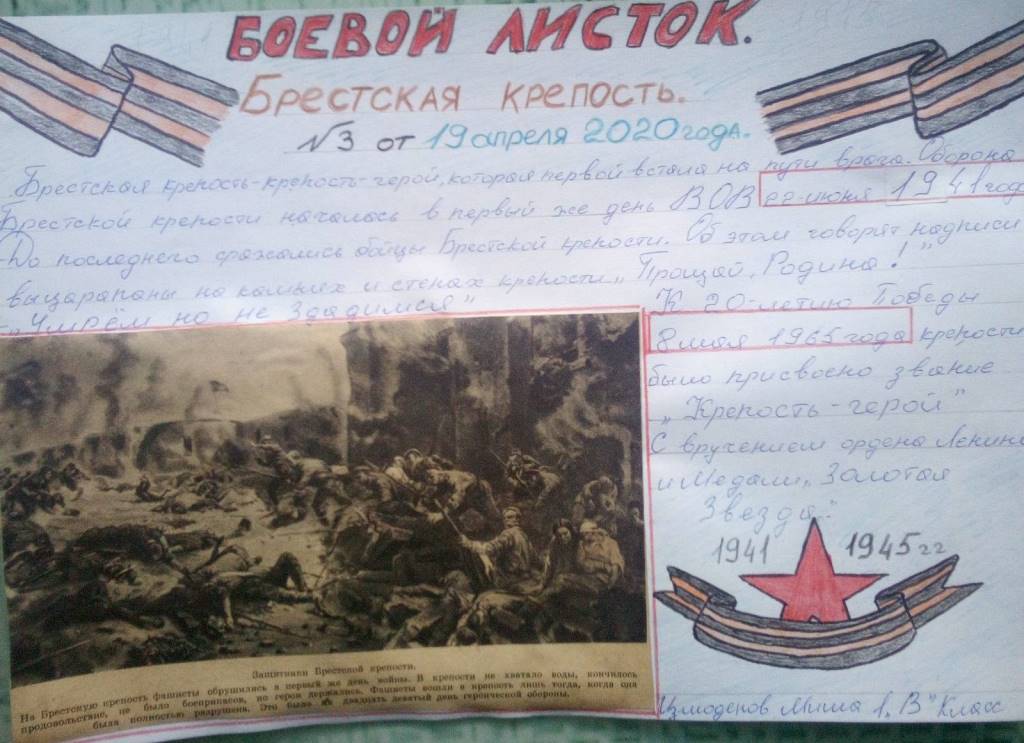 БОЕВОЙ ЛИСТОК.
Брестская крепость.
№3 от 19 апреля 2020 года.
Брестская крепость-крепость-герой, которая первой встала на пути врага. Оборона
Брестской крепости началась в первый же день ВОВ 22-июня 1941 год
До последнего сражались бойцы Брестской крепости. Об этом говорят надписи
выцарапаны на камнях и стенах крепости „Прощай, Родина!"
„Умрём но не здадимся"
К 20-летию Победы
8 мая 1965 года крепости
было присвоено звание
„Крепость-герой"
С вручением ордена Ленина
и Медали „Золотая
Звезда".
1941 1945 гг
Защитники Брестской крепости.
На Брестскую крепость фашисты обрушились в первый же день войны. В крепости не хватало воды, кончилось
продовольствие, не было боеприпасов, но герои держались. Фашисты вошли в крепость лишь тогда, когда она
была полностью разрушена. Это было на двадцать девятый день героической обороны.
Измоденов Миша 1„В" Класс